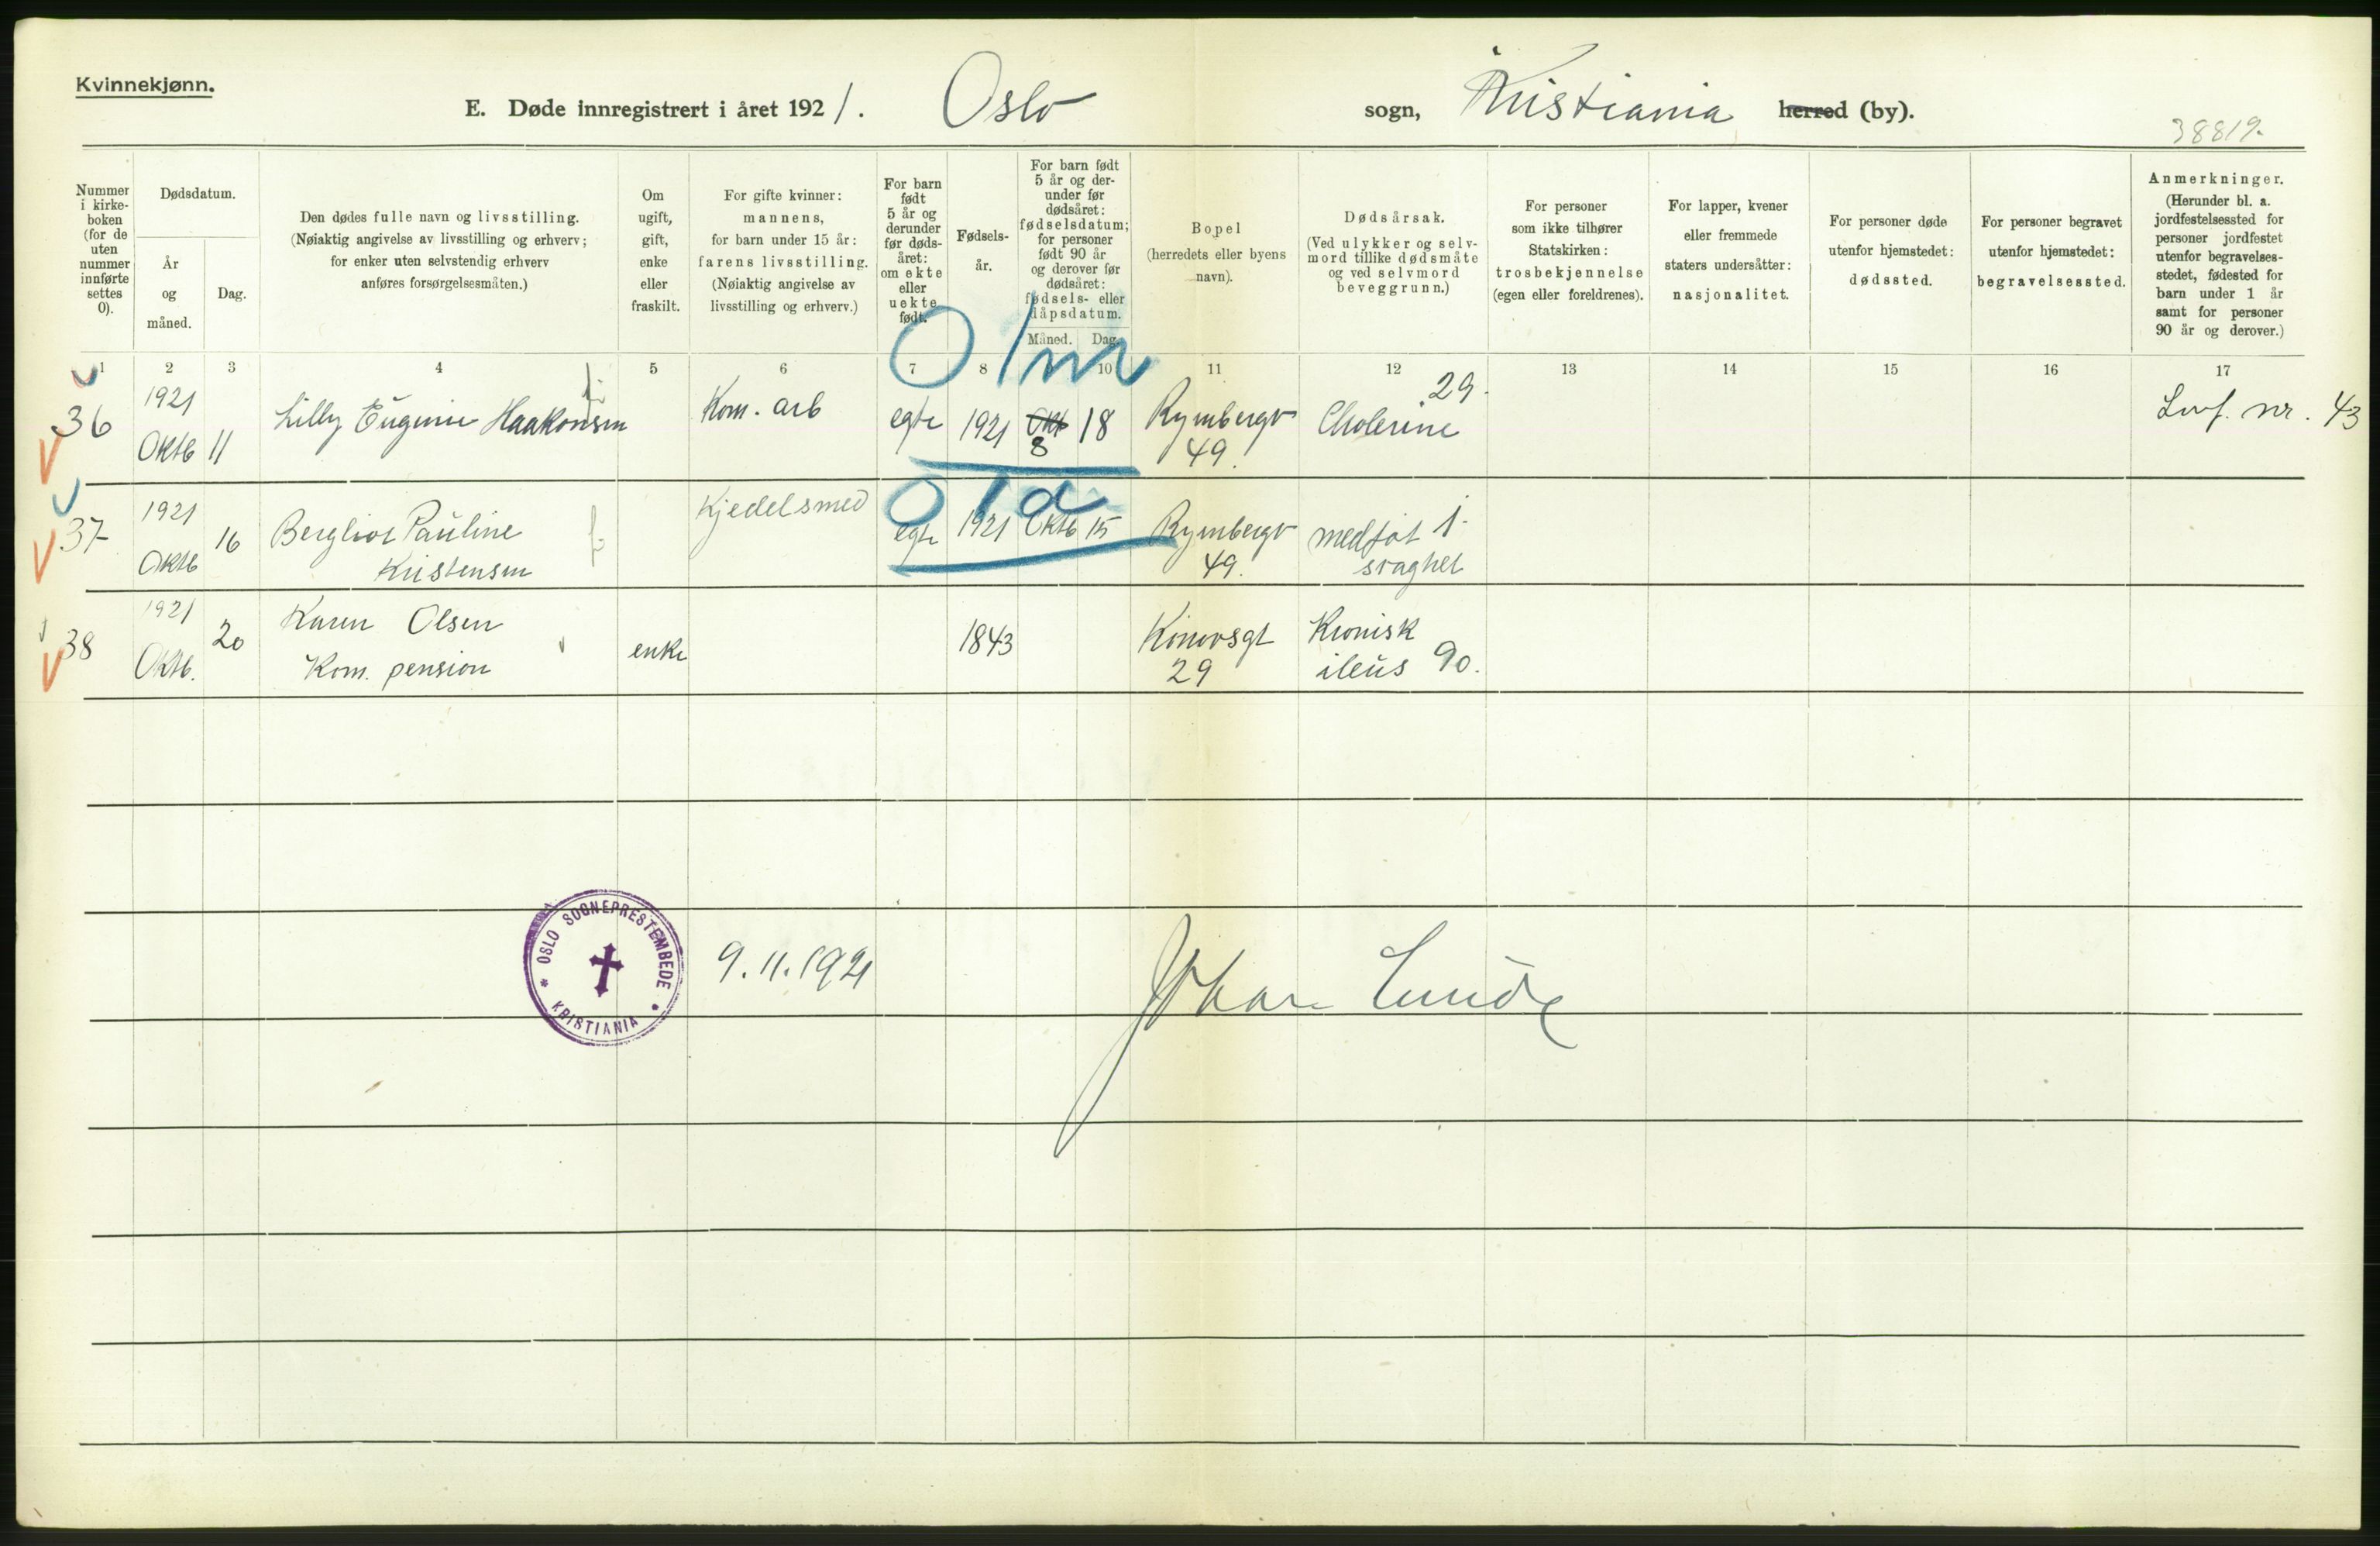 Kvinnekjønn.
E. Døde innregistrert i året 1921. Oslo sogn, Kristiania herred (by).
38819.
Nummer i kirke-boken (for de uten nummer innførte settes 0).
Dødsdatum.
År og måned.
Dag.
Den dødes fulle navn og livsstilling.
(Nøiaktig angivelse av livsstilling og erhverv;
for enker uten selvstendig erhverv
anføres forsørgelsesmåten.)
Om
ugift,
gift,
enke
eller
fraskilt.
For gifte kvinner:
mannens,
for barn under 15 år:
farens livsstilling.
(Nøiaktig angivelse av
livsstilling og erhverv.)
For barn
født
5 år og
derunder
før døds-
året:
om ekte
eller
uekte
født.
Fødsels-
år.
For barn født
5 år og der-
under før
dødsåret:
fødselsdatum;
for personer
født 90 år
og derover før
dødsåret:
fødsels- eller
dåpsdatum.
Måned. Dag.
Bopel
(herredets eller byens
navn).
Dødsårsak.
(Ved ulykker og selv-
mord tillike dødsmåte
og ved selvmord
beveggrunn.)
For personer
som ikke tilhører
Statskirken:
trosbekjennelse
(egen eller foreldrenes).
For lapper, kvener
eller fremmede
staters undersåtter:
nasjonalitet.
For personer døde
utenfor hjemstedet:
dødssted.
For personer begravet
utenfor hjemstedet:
begravelsessted.
Anmerkninger.
(Herunder bl. a.
jordfestelsessted for
personer jordfestet
utenfor begravelses-
stedet, fødested for
barn under 1 år
samt for personer
90 år og derover.)
1 2 3 4 5 6 7 8 10 11 12 13 14 15 16 17
36 1921 Oktb 11 Lilly Eugenie Haakonsen Kom. arb egte 1921 Okt 8 18 Rymbergv 49. Cholerine 29. nr. 43
37 1921 Oktb 16 Bergliot Pauline Kristensen Kjedelsmed egte 1921 Oktb 15 Rymbergv 49. medføt svaghet 1.
38 1921 Oktb. 20 Karen Olsen Kom. pension enke 1843 29 Kronisk ileus 90.
OSLO SOGNEPRESTEMBEDE
KRISTIANIA
9.11.1921
Johan Lunde